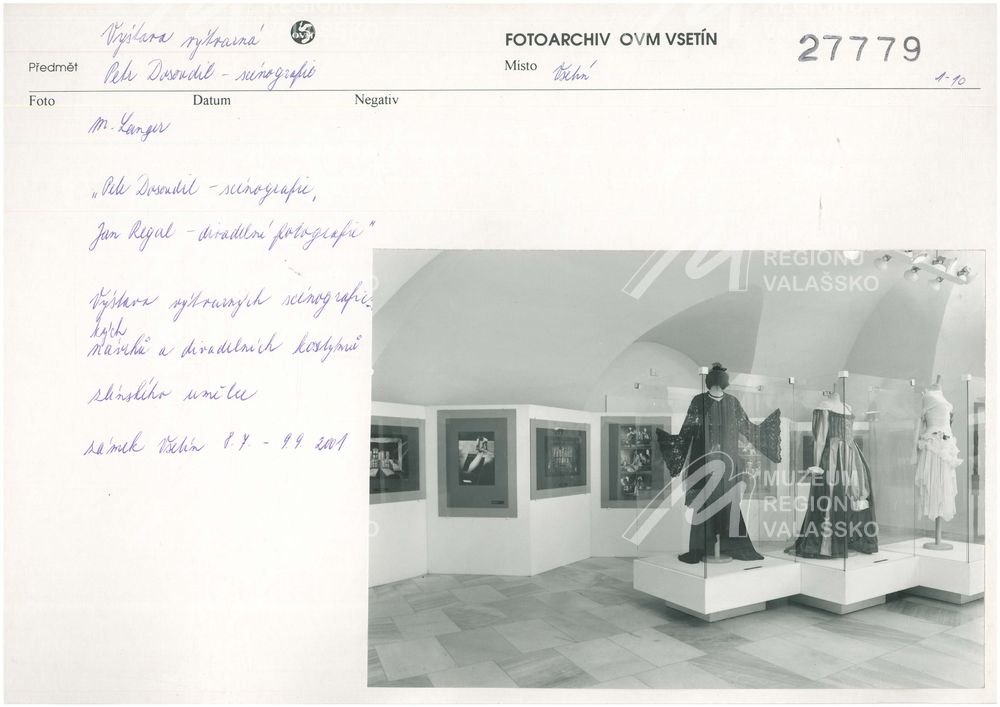 Výstava výtvarná
OVM
FOTOARCHIV OVM VSETÍN
27779
Předmět
Petr Dosoudil - scénografie
Místo
Vsetín
1-10
Foto
Datum
Negativ
M. Langer
„Petr Dosoudil - scénografie,
Jan Regal - divadelní fotografie"
Výstava výtvarných scénografic-
kých
návrhů a divadelních kostýmů
zlínského umělce
zámek Vsetín 8.7. - 9.9. 2001
REGIONU
VALAŠSKO
MUZEUM
REGIONU
VALAŠSKO